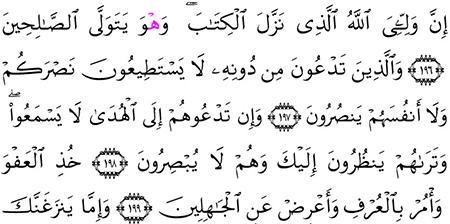 إِنَّ وَلِـِّۧيَ ٱللَّهُ ٱلَّذِى نَزَّلَ ٱلْكِتَـٰبَ ۖ وَهُوَ يَتَوَلَّى ٱلصَّـٰلِحِينَ
﴿١٩٦﴾ وَٱلَّذِينَ تَدْعُونَ مِن دُونِهِۦ لَا يَسْتَطِيعُونَ نَصْرَكُمْ
وَلَآ أَنفُسَهُمْ يَنصُرُونَ ﴿١٩٧﴾ وَإِن تَدْعُوهُمْ إِلَى ٱلْهُدَىٰ لَا يَسْمَعُوا۟ ۖ
وَتَرَىٰهُمْ يَنظُرُونَ إِلَيْكَ وَهُمْ لَا يُبْصِرُونَ ﴿١٩٨﴾ خُذِ ٱلْعَفْوَ
وَأْمُرْ بِٱلْعُرْفِ وَأَعْرِضْ عَنِ ٱلْجَـٰهِلِينَ ﴿١٩٩﴾ وَإِمَّا يَنزَغَنَّكَ